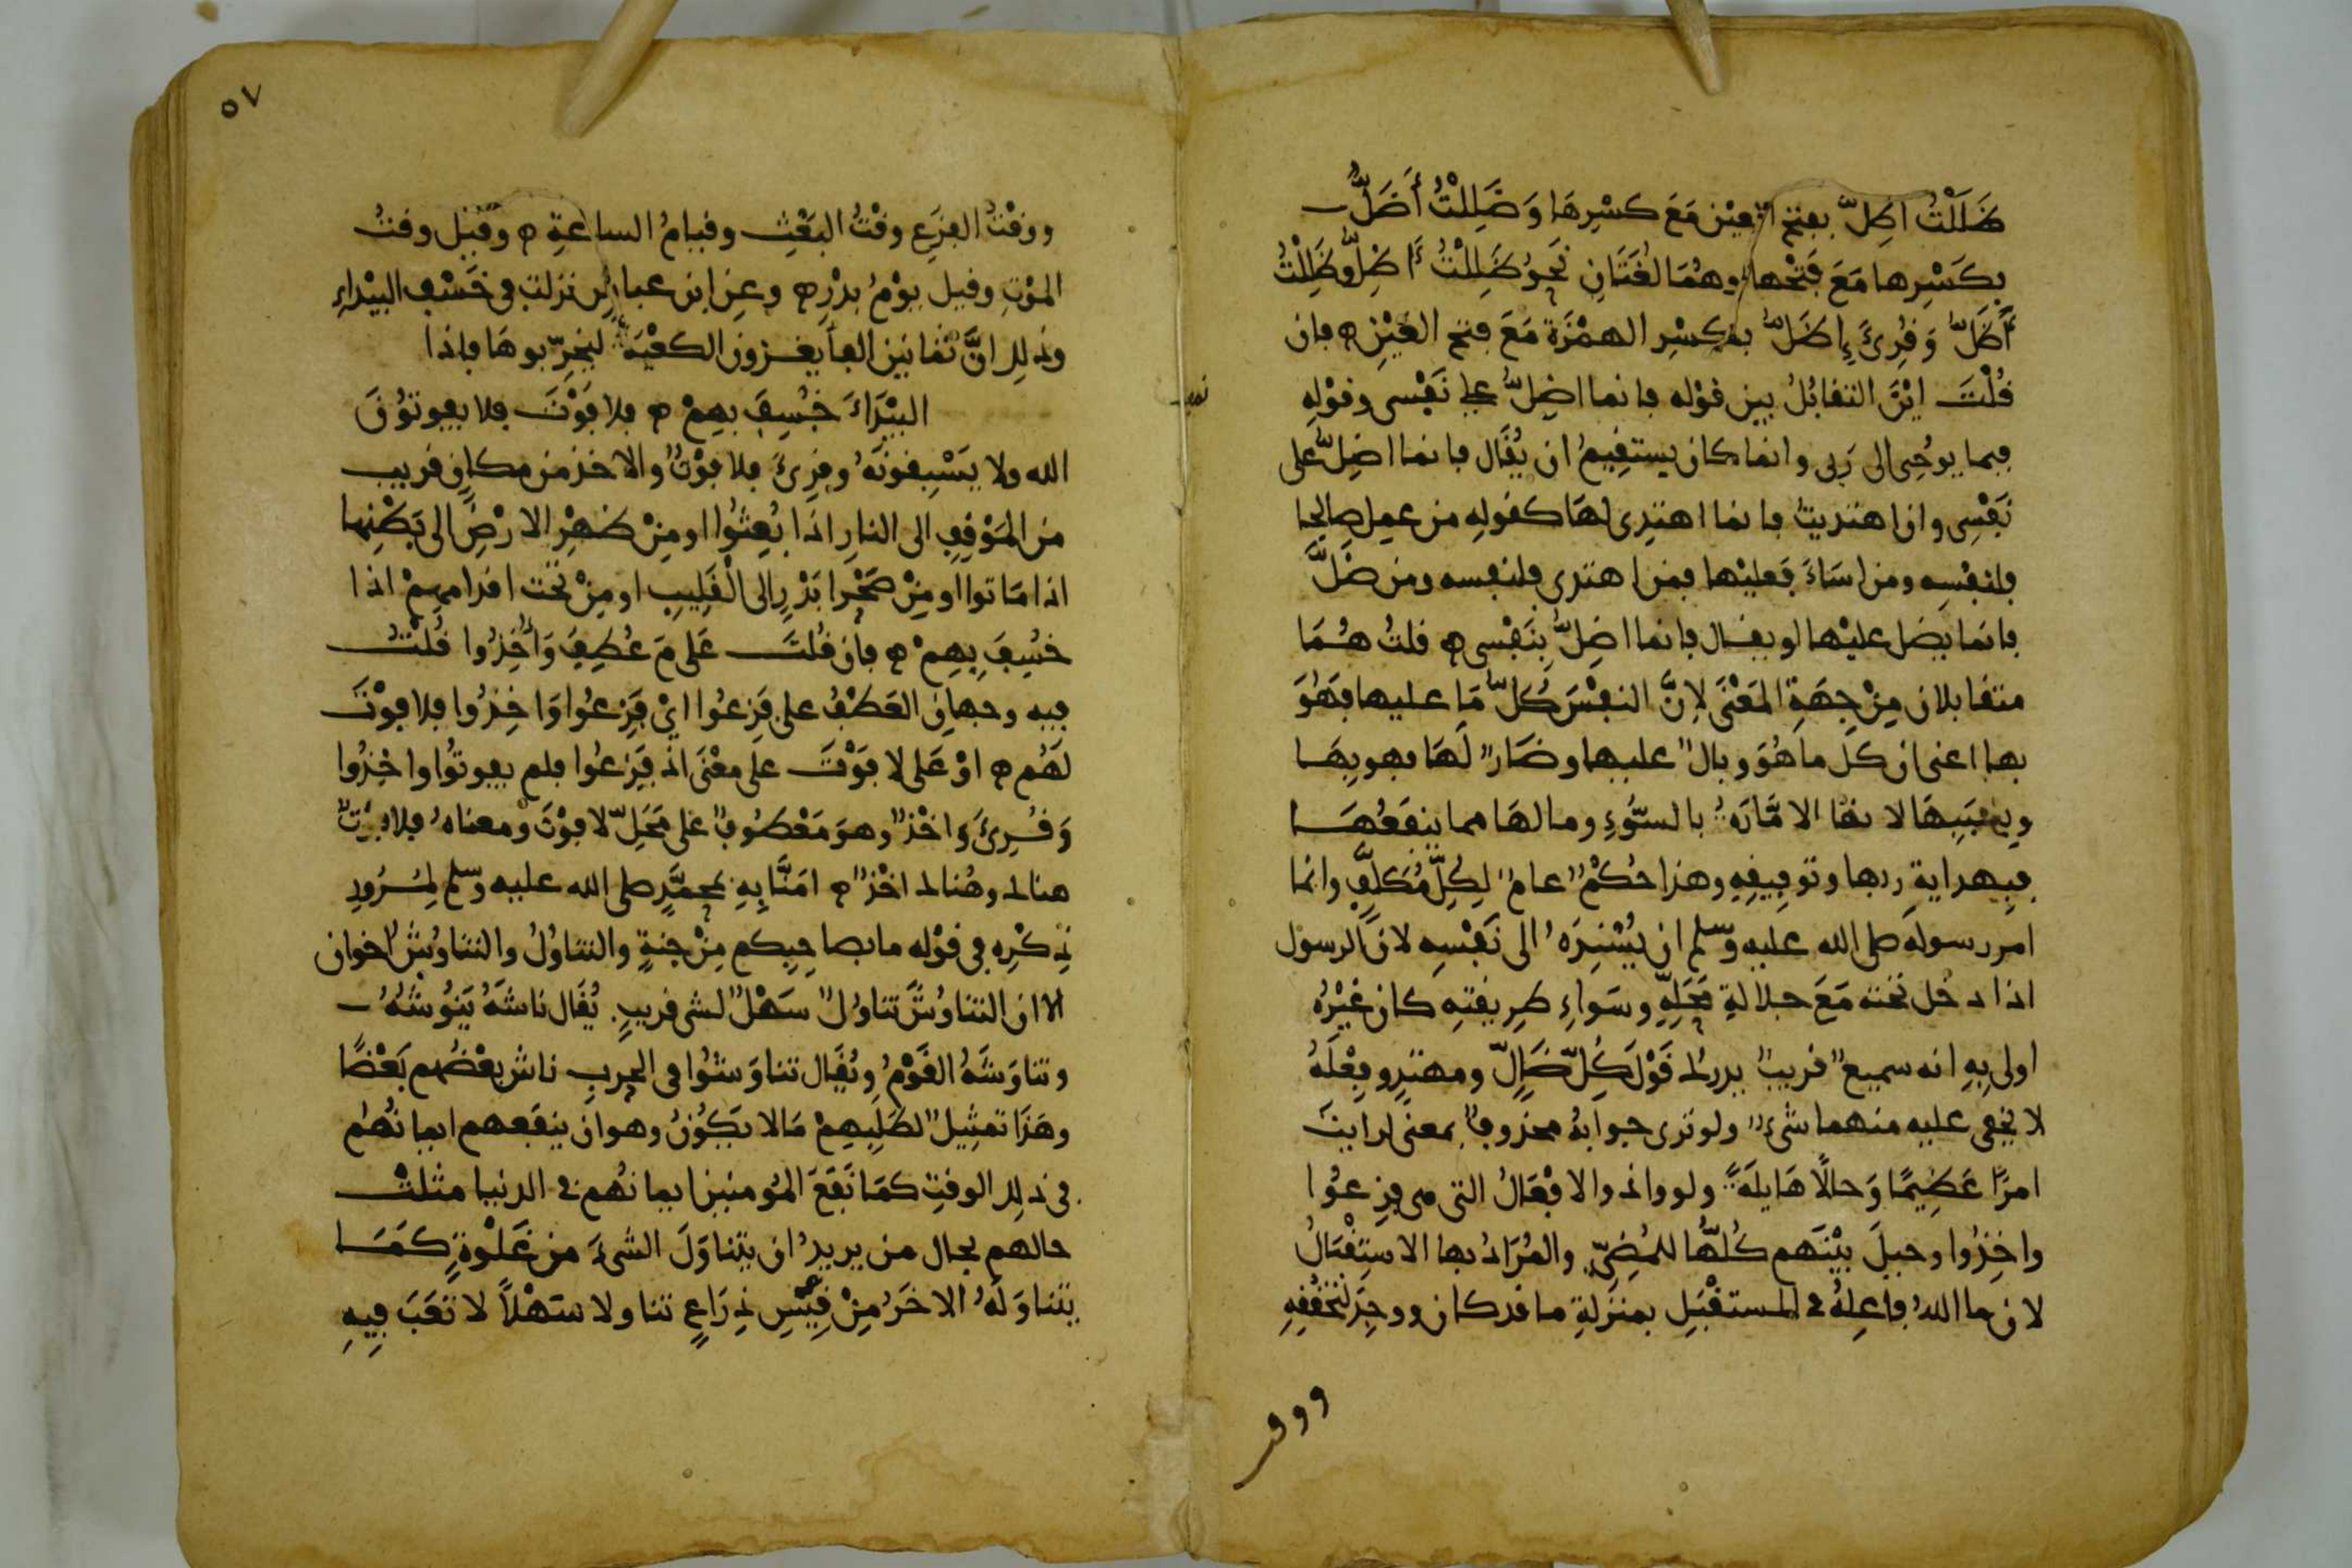 ظَلَلْتُ اظِلّ بفتح العيْن مَعَ كسْرِهَا وَضَلِلْتُ أَضَلُّ
بكَسْرِها مَعَ فَتْحها وهُمَا لُغَتَانِ نَحوُ ظَلِلْتُ أَظِلُّ وظَلِلْتُ
أَظَلُّ وَقُرِئَ إِظَلُّ بكسْرِ الهمْزَة مَعَ فتح العَيْنِ ه فان
قُلْتَ ايْنَ التقابُلُ بين قوْله فانما اضِلُّ على نَفْسى وقوْلِهِ
فبما يوحِى الى رَبى وانما كان يستقِيمُ ان يُقَال فانما اضِلُّ على
نَفْسِى وان اهتديتُ فانما اهتدِى لهَا كقولِهِ من عمِل صالِحا
فلنفْسِه ومن اسَاءَ فَعليْها فمن اهتدى فلنفسه ومن ضَلَّ
فانما يضل عليْها او يقال فانما اضِلُّ بِنَفْسى ه قلتُ هُمَا
متقابلان مِنْ جِهَةِ المَعْنَى لانَّ النفْسَ كُلّ مَا عليها فَهُوَ
بها اعنى ان كل ما هُوَ وبالٌ عليها وضَارٌ لَهَا فهو بِهَا
وبِسَبَبِهَا لانها الامَّارَةُ بالسّوُءِ وما لهَا مما ينفَعُهَا
فبِهدايةِ ربها وتوفِيقِهِ وهذا حُكْمٌ عامٌ لِكِلِّ مُكَلّفٍ وانما
امر رسولَه صلى الله عليه وسلم ان يُسْنِدَهُ الى نَفْسِه لانَّ الرسول
اذا دخل تحْته مَعَ جلالةِ مَحَلِّهِ وسَواءِ طرِيقتِهِ كان غَيْرُهُ
اولى بِهِ انه سميعٌ قريبٌ يدرك قَوْلَ كُلّ ضَالٍّ ومهْتدٍ وفِعْلَهُ
لا يخفى عليه منهما شىءٌ ولو ترى جوابهُ محذوفٌ بمعنى لرايتَ
امرًا عَظِيمًا وَحالًا هَايلَةً ولو واذ والافْعَالُ التى هى فزِعوُا
واخِذُوا وحيلَ بيْنَهم كُلُّهَا للمُضِىّ والمُرَادُ بها الاسْتِقْبَالُ
لان ما اللهُ فاعِلهُ فى المستقْبَلِ بمنزَلةِ ما قد كان ووجِدَ لتحَقُّقِهِ
ووقت
٥٧
ووقْتُ الفزَعِ وقْتُ البَعْثِ وقيامُ الساعةِ ه وقِيل وقتُ
المَوْتِ وقيل يوْمُ بدْرٍ ه وعن ابن عباس نزلت فى خَسْفِ البَيْداءِ
وذلِك انَّ ثمانين الفا يغزون الكعْبَةَ ليخرّبوهَا فاذا
البَيْدَاءَ خُسِفَ بهِمْ ه فلا فَوْتَ فلا يفوتوُنَ
الله ولا يَسْبِقونَهُ وقرِئَ فلا فوْتٌ والاخذ من مكانٍ قريب
من المَوْقِفِ الى النارِ اذا بُعِثُوا او مِنْ ظهْرِ الارْضِ الى بَطْنِها
اذا مَاتوا او مِنْ صَحْرا بَدْرٍ الى القَلِيبِ او مِنْ تحْت اقدامهِمْ اذا
خسُِفَ بِهِمْ ه فان قُلتَ عَلى مَ عُطِفَ وَأُخِذُوا قُلْتُ
فيه وجهان العَطْفُ على فَزِعُوا اىْ فَزِعوُا وَاخِذُوا فلا فوْتَ
لَهُم ه اوْ عَلى لا فَوْتَ على معْنَى اذ فَزِعوُا فلم يفوتوُا واخِذُوا
وَقُرِئَ وَاخْذٌ وهوَ مَعْطوُفٌ على مَحَلِّ لا فوْتَ ومعناهُ فلا فوْتٌ
هناك وهُناك اخْذٌ ه امَنَّا بِهِ بمحمَّدٍ صلى الله عليه وسلم لِمُرُورِ
ذِكْرِه فى قوْله ما بصاحِبِكم مِنْ جنةٍ والتناوُلُ والتناوُشُ اخوانِ
الا ان التناوُشَ تناوُلٌ سَهْلٌ لشىءٍ قريبٍ. يُقَال ناشَهُ يَنوُشُهُ
وتناوَشَهُ القَوْمُ ويُقَال تناوَشوُا فى الحربِ ناشَ بعْضُهم بَعْضًا
وهَذَا تمثِيلٌ لطَلَبِهِمْ مَا لا يَكوُنُ وهو ان ينفَعهم ايمانُهُم
فى ذلِك الوقتِ كمَا نَفَعَ المُومنين ايمانُهُم فى الدنيا مثلتْ
حالهم بحال من يريدُ ان يتناوَلَ الشىءَ من غَلْوةٍ كمَا
يتناوَلهُ الاخَرُ مِنْ قِيْسِ ذِرَاعٍ تناولا سَهْلاً لا تَعَبَ فِيهِ